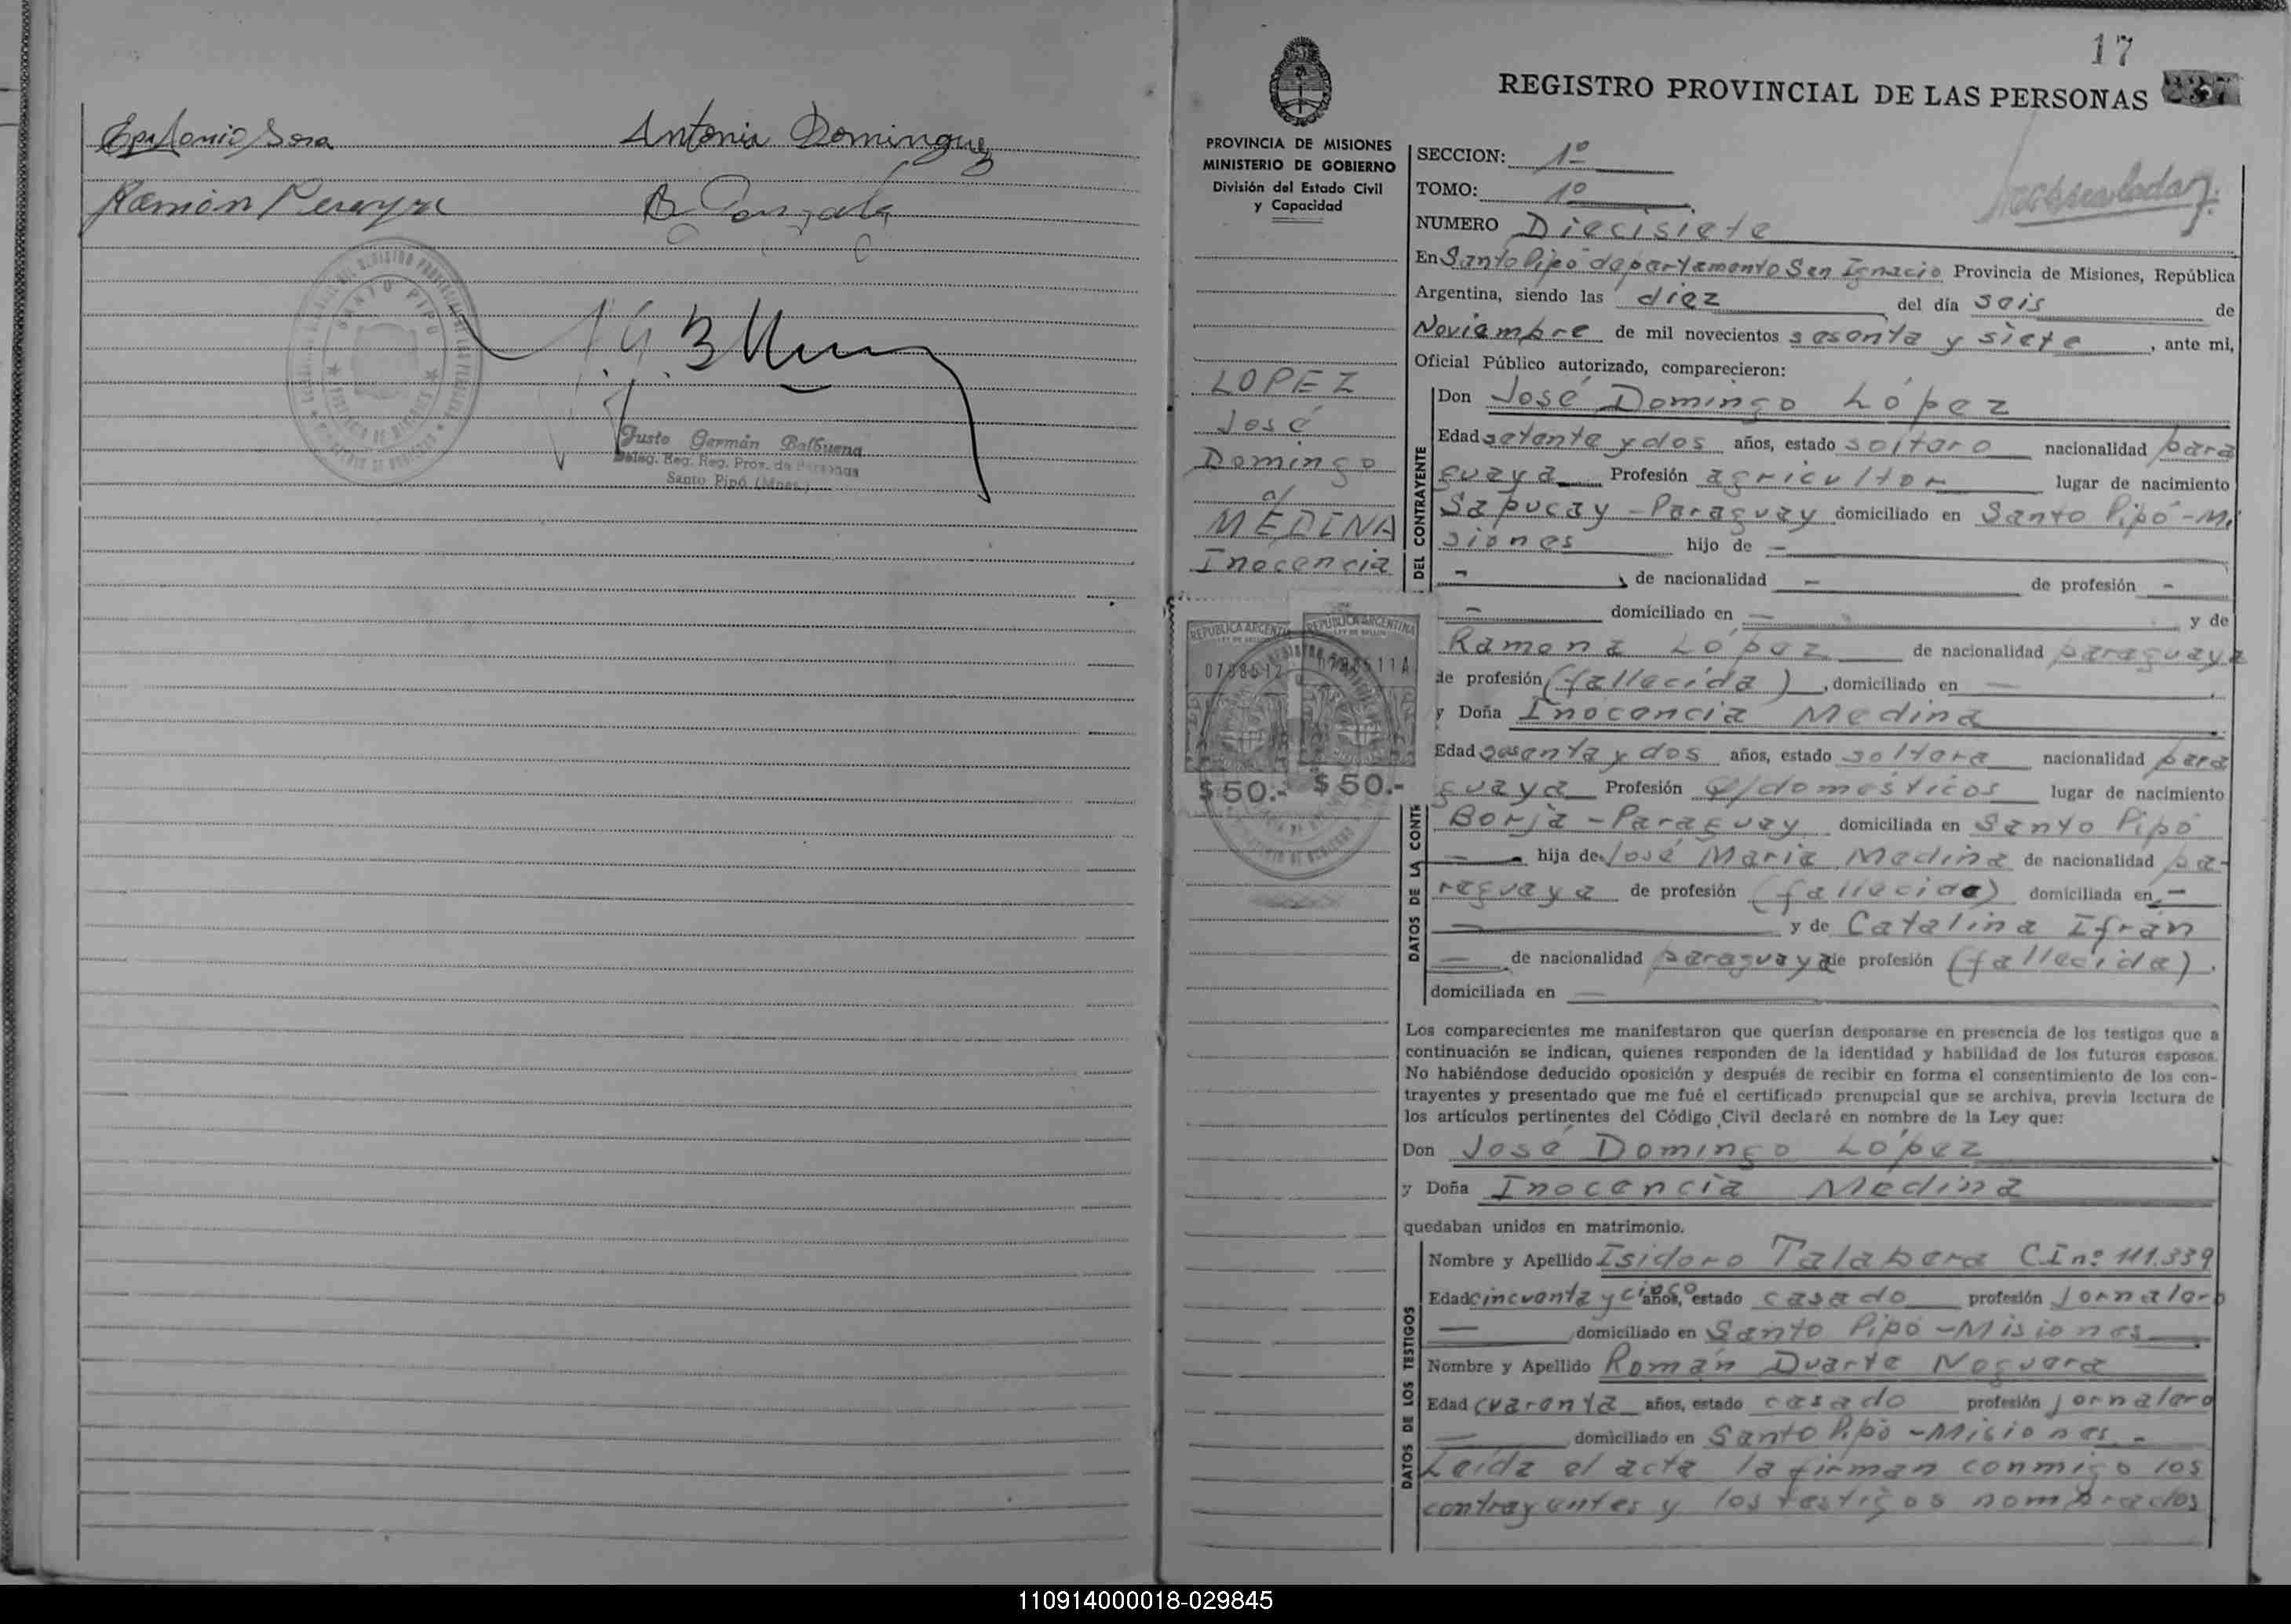 Antonia Dominguez
Ramón Pereyra
Justo Germán Balbuena
Deleg. Reg. Reg. Prov. de Personas
Santo Pipó (Mnes.)
17
REGISTRO PROVINCIAL DE LAS PERSONAS
PROVINCIA DE MISIONES
MINISTERIO DE GOBIERNO
División del Estado Civil
y Capacidad
LOPEZ
José
Domingo
c/
MEDINA
Inocencia
REPUBLICA ARGENTINA
$50.- $50.-
SECCION: 1º
TOMO: 1º
NUMERO Diecisiete
En Santo Pipó departamento San Ignacio Provincia de Misiones, República
Argentina, siendo las diez del día seis de
Noviembre de mil novecientos sesenta y siete, ante mi,
Oficial Público autorizado, comparecieron:
DEL CONTRAYENTE
Don José Domingo López
Edad setenta y dos años, estado soltero nacionalidad para
guaya Profesión agricultor lugar de nacimiento
Sapucay - Paraguay domiciliado en Santo Pipó - Mi
siones hijo de —
— , de nacionalidad — de profesión —
— domiciliado en — y de
Ramona López de nacionalidad paraguaya
de profesión (fallecida), domiciliado en —
y Doña Inocencia Medina
DATOS DE LA CONTR
Edad sesenta y dos años, estado soltera nacionalidad para
guaya Profesión q/domésticos lugar de nacimiento
Borja - Paraguay domiciliada en Santo Pipó
— hija de José María Medina de nacionalidad pa-
raguaya de profesión (fallecido) domiciliada en —
— y de Catalina Ifrán
— de nacionalidad paraguaya de profesión (fallecida).
domiciliada en —
Los comparecientes me manifestaron que querían desposarse en presencia de los testigos que a
continuación se indican, quienes responden de la identidad y habilidad de los futuros esposos.
No habiéndose deducido oposición y después de recibir en forma el consentimiento de los con-
trayentes y presentado que me fué el certificado prenupcial que se archiva, previa lectura de
los artículos pertinentes del Código Civil declaré en nombre de la Ley que:
Don José Domingo López
y Doña Inocencia Medina
quedaban unidos en matrimonio.
DATOS DE LOS TESTIGOS
Nombre y Apellido Isidoro Talabera CI nº 111.339
Edad cincuenta y cinco años, estado casado profesión jornalero
— domiciliado en Santo Pipó - Misiones
Nombre y Apellido Román Duarte Noguera
Edad cuarenta años, estado casado profesión jornalero
— domiciliado en Santo Pipó - Misiones -
Leída el acta la firman conmigo los
contrayentes y los testigos nombrados
110914000018-029845